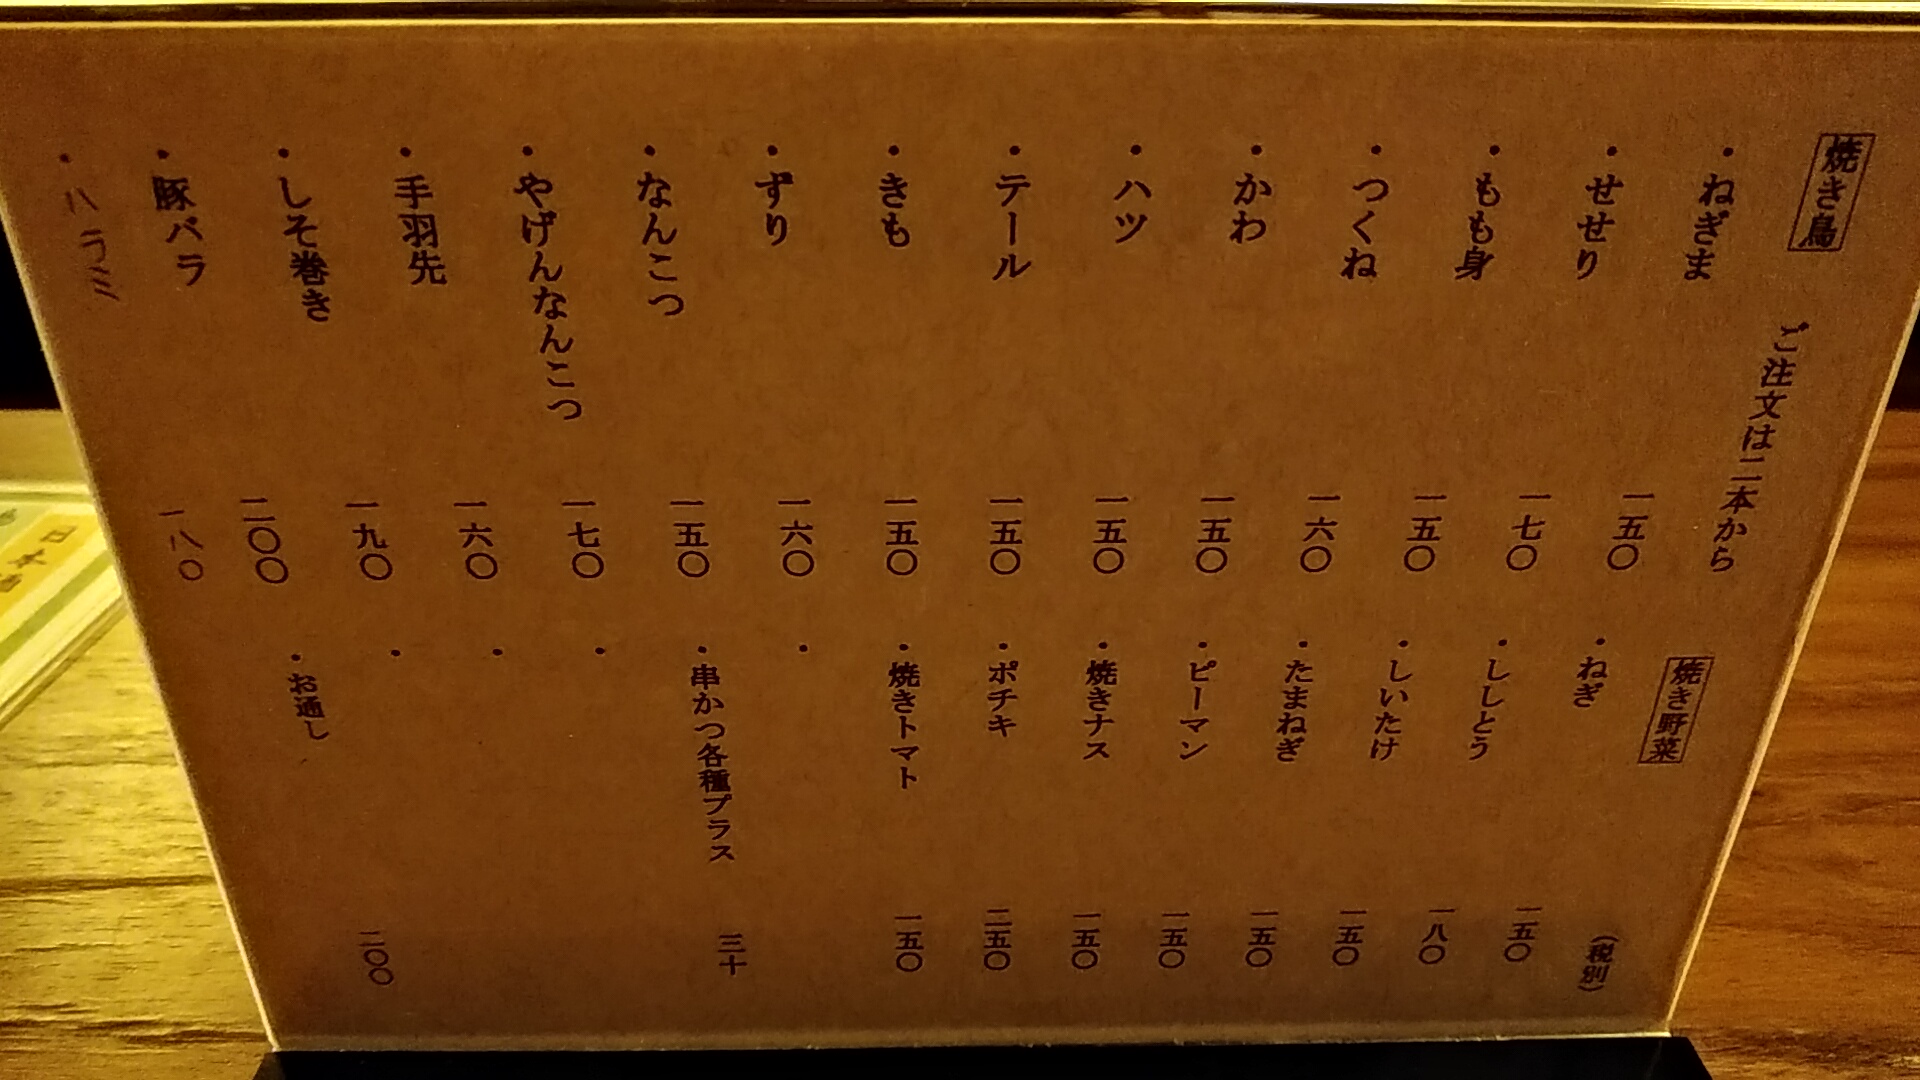 焼き鳥 ご注文は二本から
・ねぎま 一五〇
・せせり 一七〇
・もも身 一五〇
・つくね 一六〇
・かわ 一五〇
・ハツ 一五〇
・テール 一五〇
・きも 一五〇
・ずり 一六〇
・なんこつ 一五〇
・やげんなんこつ 一七〇
・手羽先 一六〇
・しそ巻き 一九〇
・豚バラ 二〇〇
・ハラミ 一八〇
焼き野菜 (税別)
・ねぎ 一五〇
・ししとう 一八〇
・しいたけ 一五〇
・たまねぎ 一五〇
・ピーマン 一五〇
・焼きナス 一五〇
・ポチキ 二五〇
・焼きトマト 一五〇
・
・串かつ各種プラス 三十
・
・
・
・お通し 二〇〇
日本酒